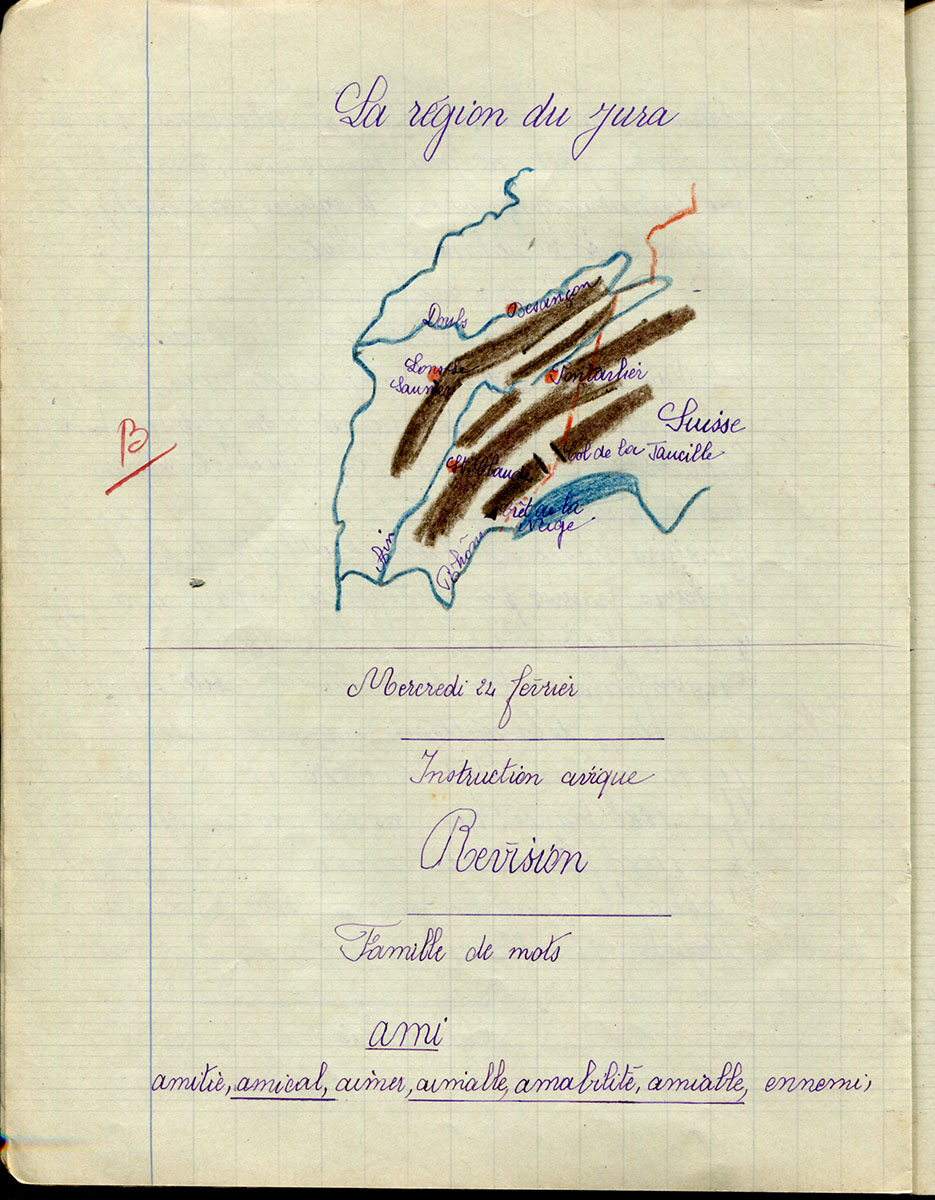 La région du Jura
Doubs
Besançon
Lons-le
Saunier
Pontarlier
Suisse
B
St Claude
Col de la Faucille
Crêt de la
Neige
Ain
Rhône
Mercredi 24 février
Instruction civique
Revision
Famille de mots
ami
amitié, amical, aimer, aimable, amabilité, amiable, ennemi,